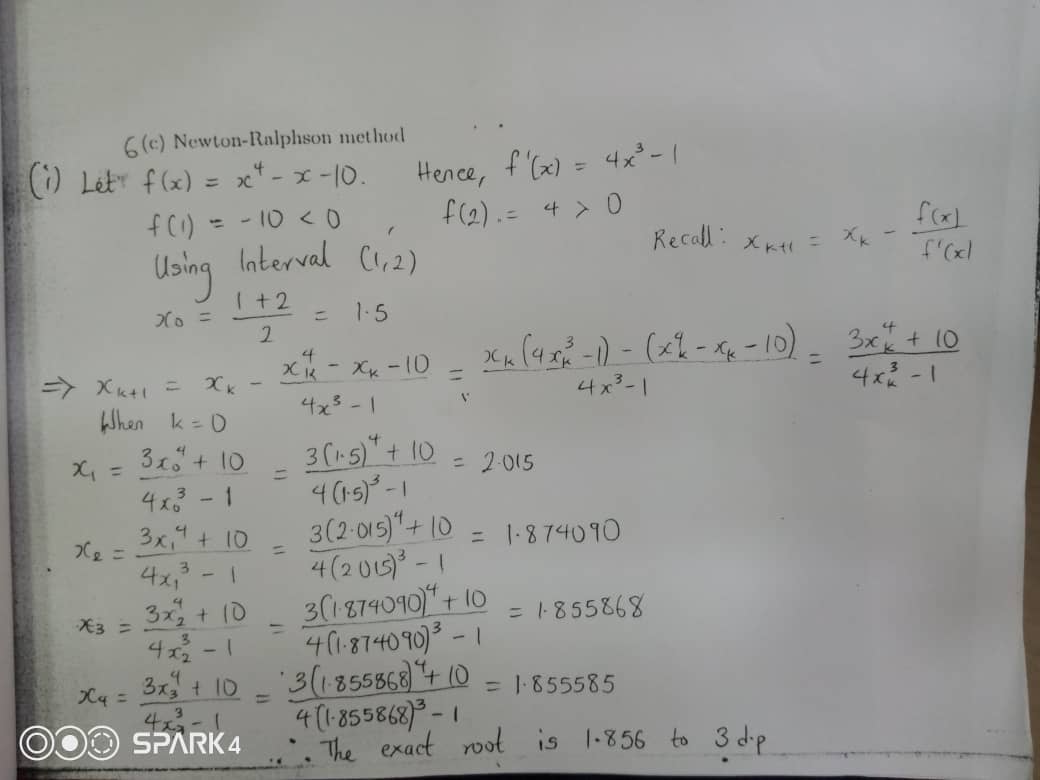 6(c) Newton-Ralphson method
(i) Let f(x) = x⁴ - x - 10. Hence, f'(x) = 4x³ - 1
f(1) = -10 < 0 , f(2) = 4 > 0
Using Interval (1,2) Recall: x_{k+1} = x_k - f(x)/f'(x)
x₀ = (1+2)/2 = 1.5
⇒ x_{k+1} = x_k - (x_k⁴ - x_k - 10)/(4x³ - 1) = (x_k(4x_k³ - 1) - (x_k⁴ - x_k - 10))/(4x³ - 1) = (3x_k⁴ + 10)/(4x_k³ - 1)
When k = 0
x₁ = (3x₀⁴ + 10)/(4x₀³ - 1) = (3(1.5)⁴ + 10)/(4(1.5)³ - 1) = 2.015
x₂ = (3x₁⁴ + 10)/(4x₁³ - 1) = (3(2.015)⁴ + 10)/(4(2.015)³ - 1) = 1.874090
x₃ = (3x₂⁴ + 10)/(4x₂³ - 1) = (3(1.874090)⁴ + 10)/(4(1.874090)³ - 1) = 1.855868
x₄ = (3x₃⁴ + 10)/(4x₃³ - 1) = (3(1.855868)⁴ + 10)/(4(1.855868)³ - 1) = 1.855585
∴ The exact root is 1.856 to 3 d.p
SPARK 4